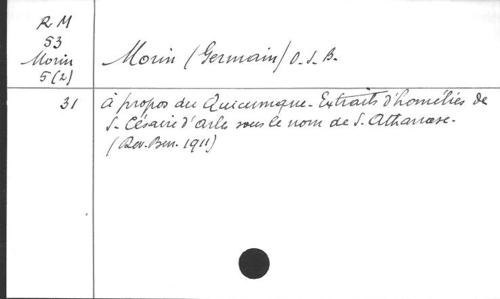 R M
53
Morin
5(2)
Morin (Germain) O.S.B.
31
à propos du Quicumque - Extraits d'homélies de
S. Césaire d'Arle sous le nom de S. Athanase.
(Rev. Ben. 1911)